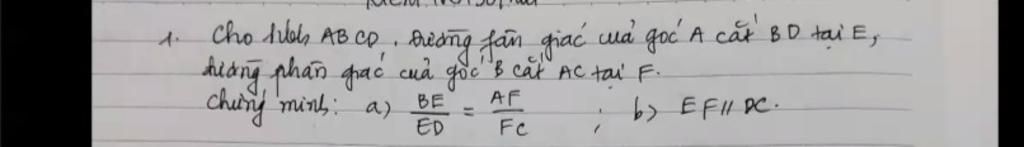 1. Cho hbh ABCD. Đường fân giác của góc A cắt BD tại E,
đường phân giác của góc B cắt AC tại F.
Chứng minh: a) BE/ED = AF/FC ; b) EF // DC.